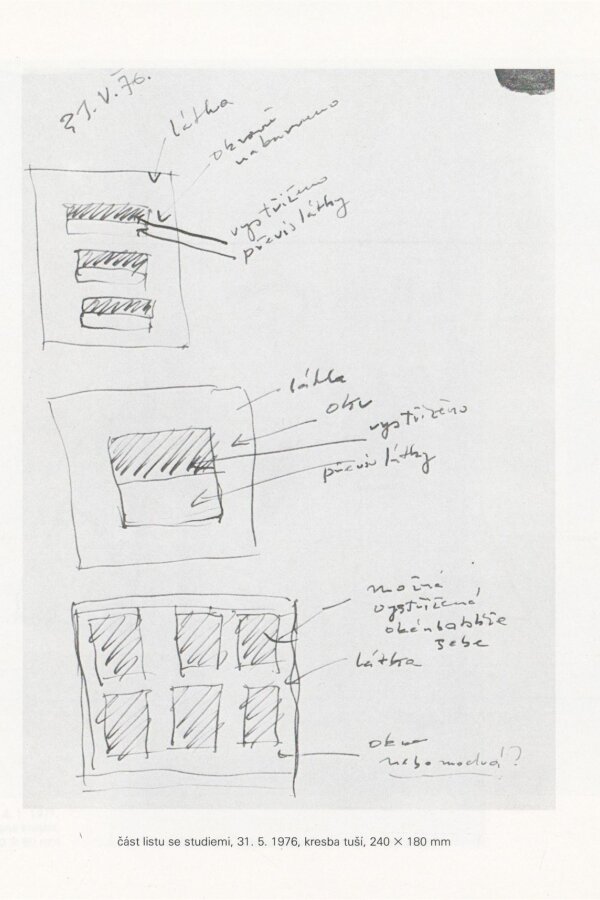 31.V.76.
látka
okrově
nabarveno
vystřiženo
převis látky
látka
okr
vystřiženo
převis látky
možná
vystřižená
okénka blíže
sebe
látka
okr
nebo modrá?
část listu se studiemi, 31. 5. 1976, kresba tuší, 240 × 180 mm